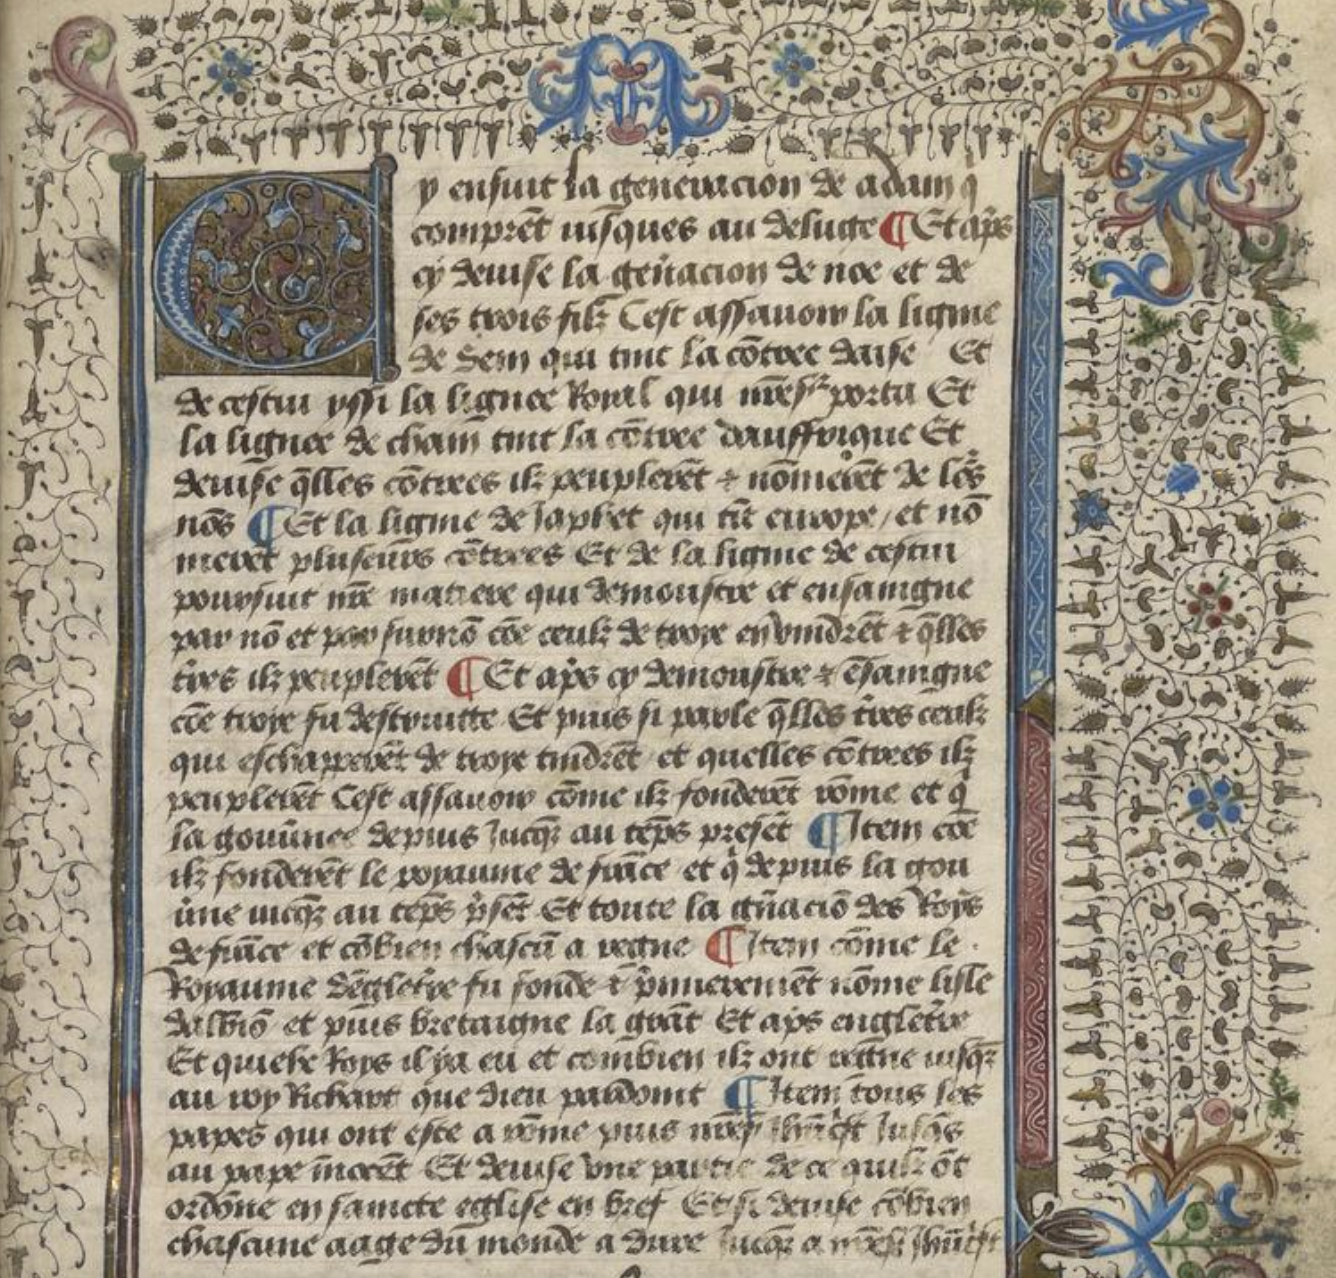 Cy ensuit la generacion de adam q̄
comprēt iusques au deluge ¶ Et ap̄s
cy deuise la gēnacion de noe et de
ses trois filz Cest assauoir la ligne
de Sem qui tint la cōtree daise Et
de cestui yssi la lignee Roial qui porta Et
la lignee de cham tint la cōtree dauffrique Et
deuise q̄lles cōtrees ilz peuplerēt ⁊ nōmerēt de lo2s
nōs ¶ Et la ligne de Japhet qui tīt europe / et nō
merēt pluseurs cōtrees Et de la ligne de cestui
poursuit nr̄e matiere qui demonstre et ensaingne
par nō et par surnō cōe ceulz de troye en vindrēt ⁊ q̄lles
tr̄es ilz peuplerēt ¶ Et ap̄s cy demonstre ⁊ ēsaingne
cōe troye fu destruitte Et puis si parle q̄lles tr̄es ceulz
qui eschapperēt de troye tindrēt et quelles cōtrees ilz
peuplerēt Cest assauoir cōme ilz fonderēt rōme et q̄
la gouūne depuis Jucqz au tēps presēt ¶ Item cōe
ilz fonderēt le royaume de frāce et q̄ depuis la gou
ūne iucqz au tēps p̄sēt Et toute la gn̄aciō des Roys
de frāce et cōbien chascū a regne ¶ Item cōme le
Royaume dēgletr̄e fu fonde ⁊ p̄mierement nōme lisle
dalbiō et puis bretaigne la grāt Et ap̄s engletr̄e
Et quielx Roys il y a eu et combien ilz ont regne iusqz
au roy Richart que dieu pardoint ¶ Item tous les
papes qui ont este a rōme puis
au pape īnocēt Et deuise vne partie de ce quilz ōt
ordōne en saincte eglise en bref Et si deuise cōbien
chascune aage du monde a dure Jucqz a